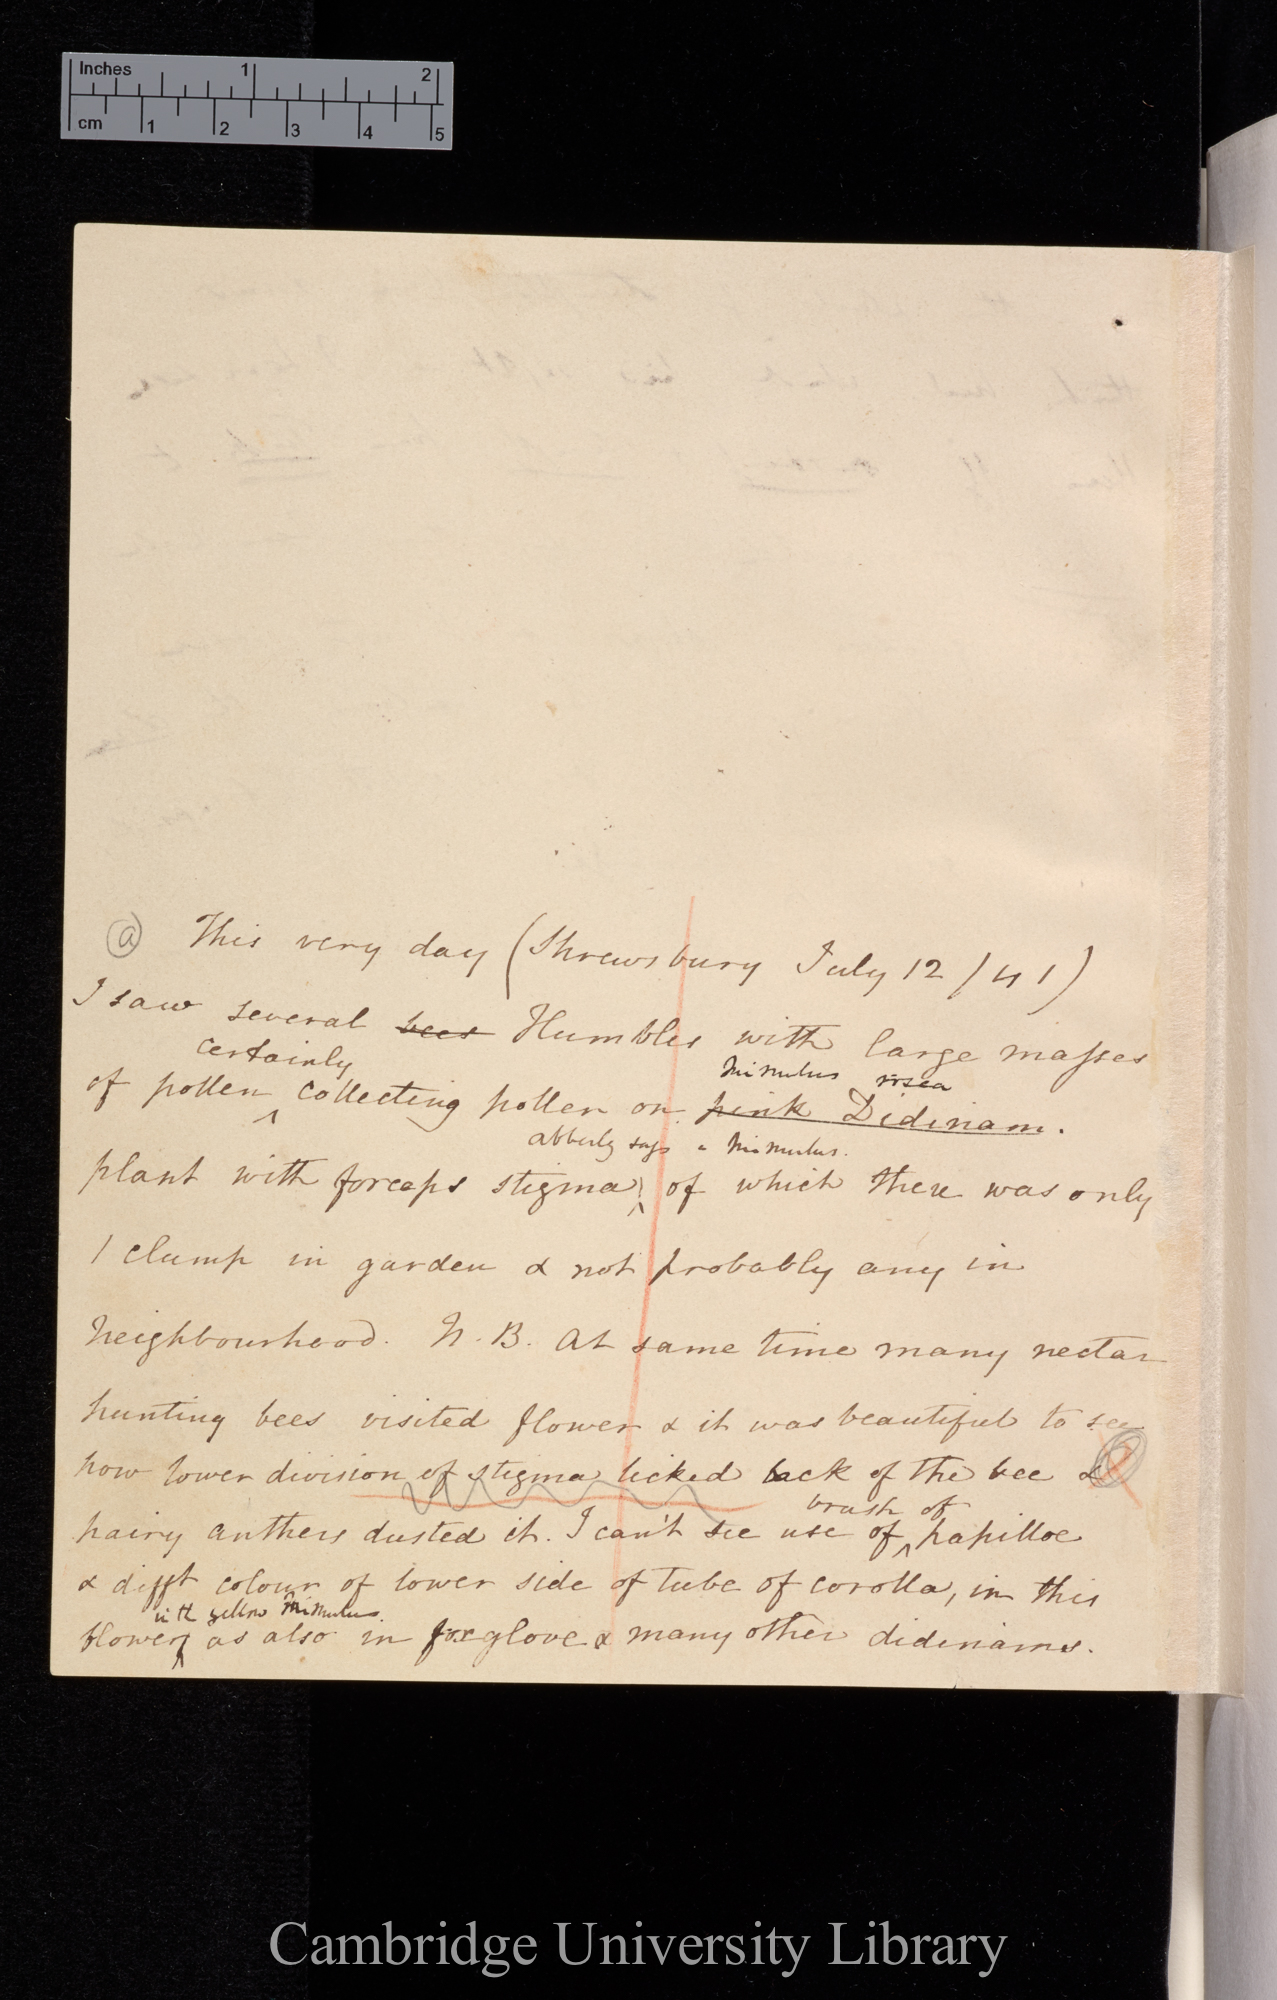 Inches 1 2
cm 1 2 3 4 5
(a) This very day (Shrewsbury July 12/41)
I saw several bees Humbles with large masses
certainly
of pollen ^ collecting pollen on pink Didinam.
Mimulus rosea
abberly says a Mimulus.
plant with forceps stigma ^ of which there was only
1 clump in garden & not probably any in
neighbourhood. N.B. At same time many nectar
hunting bees visited flower & it was beautiful to see
how lower division of stigma licked back of the bee &
hairy anthers dusted it. I can't see use of ^ papilloe
brush of
& difft colour of lower side of tube of corolla, in this
with yellow Mimulus
flower ^ as also in foxglove & many other didinams.
Cambridge University Library